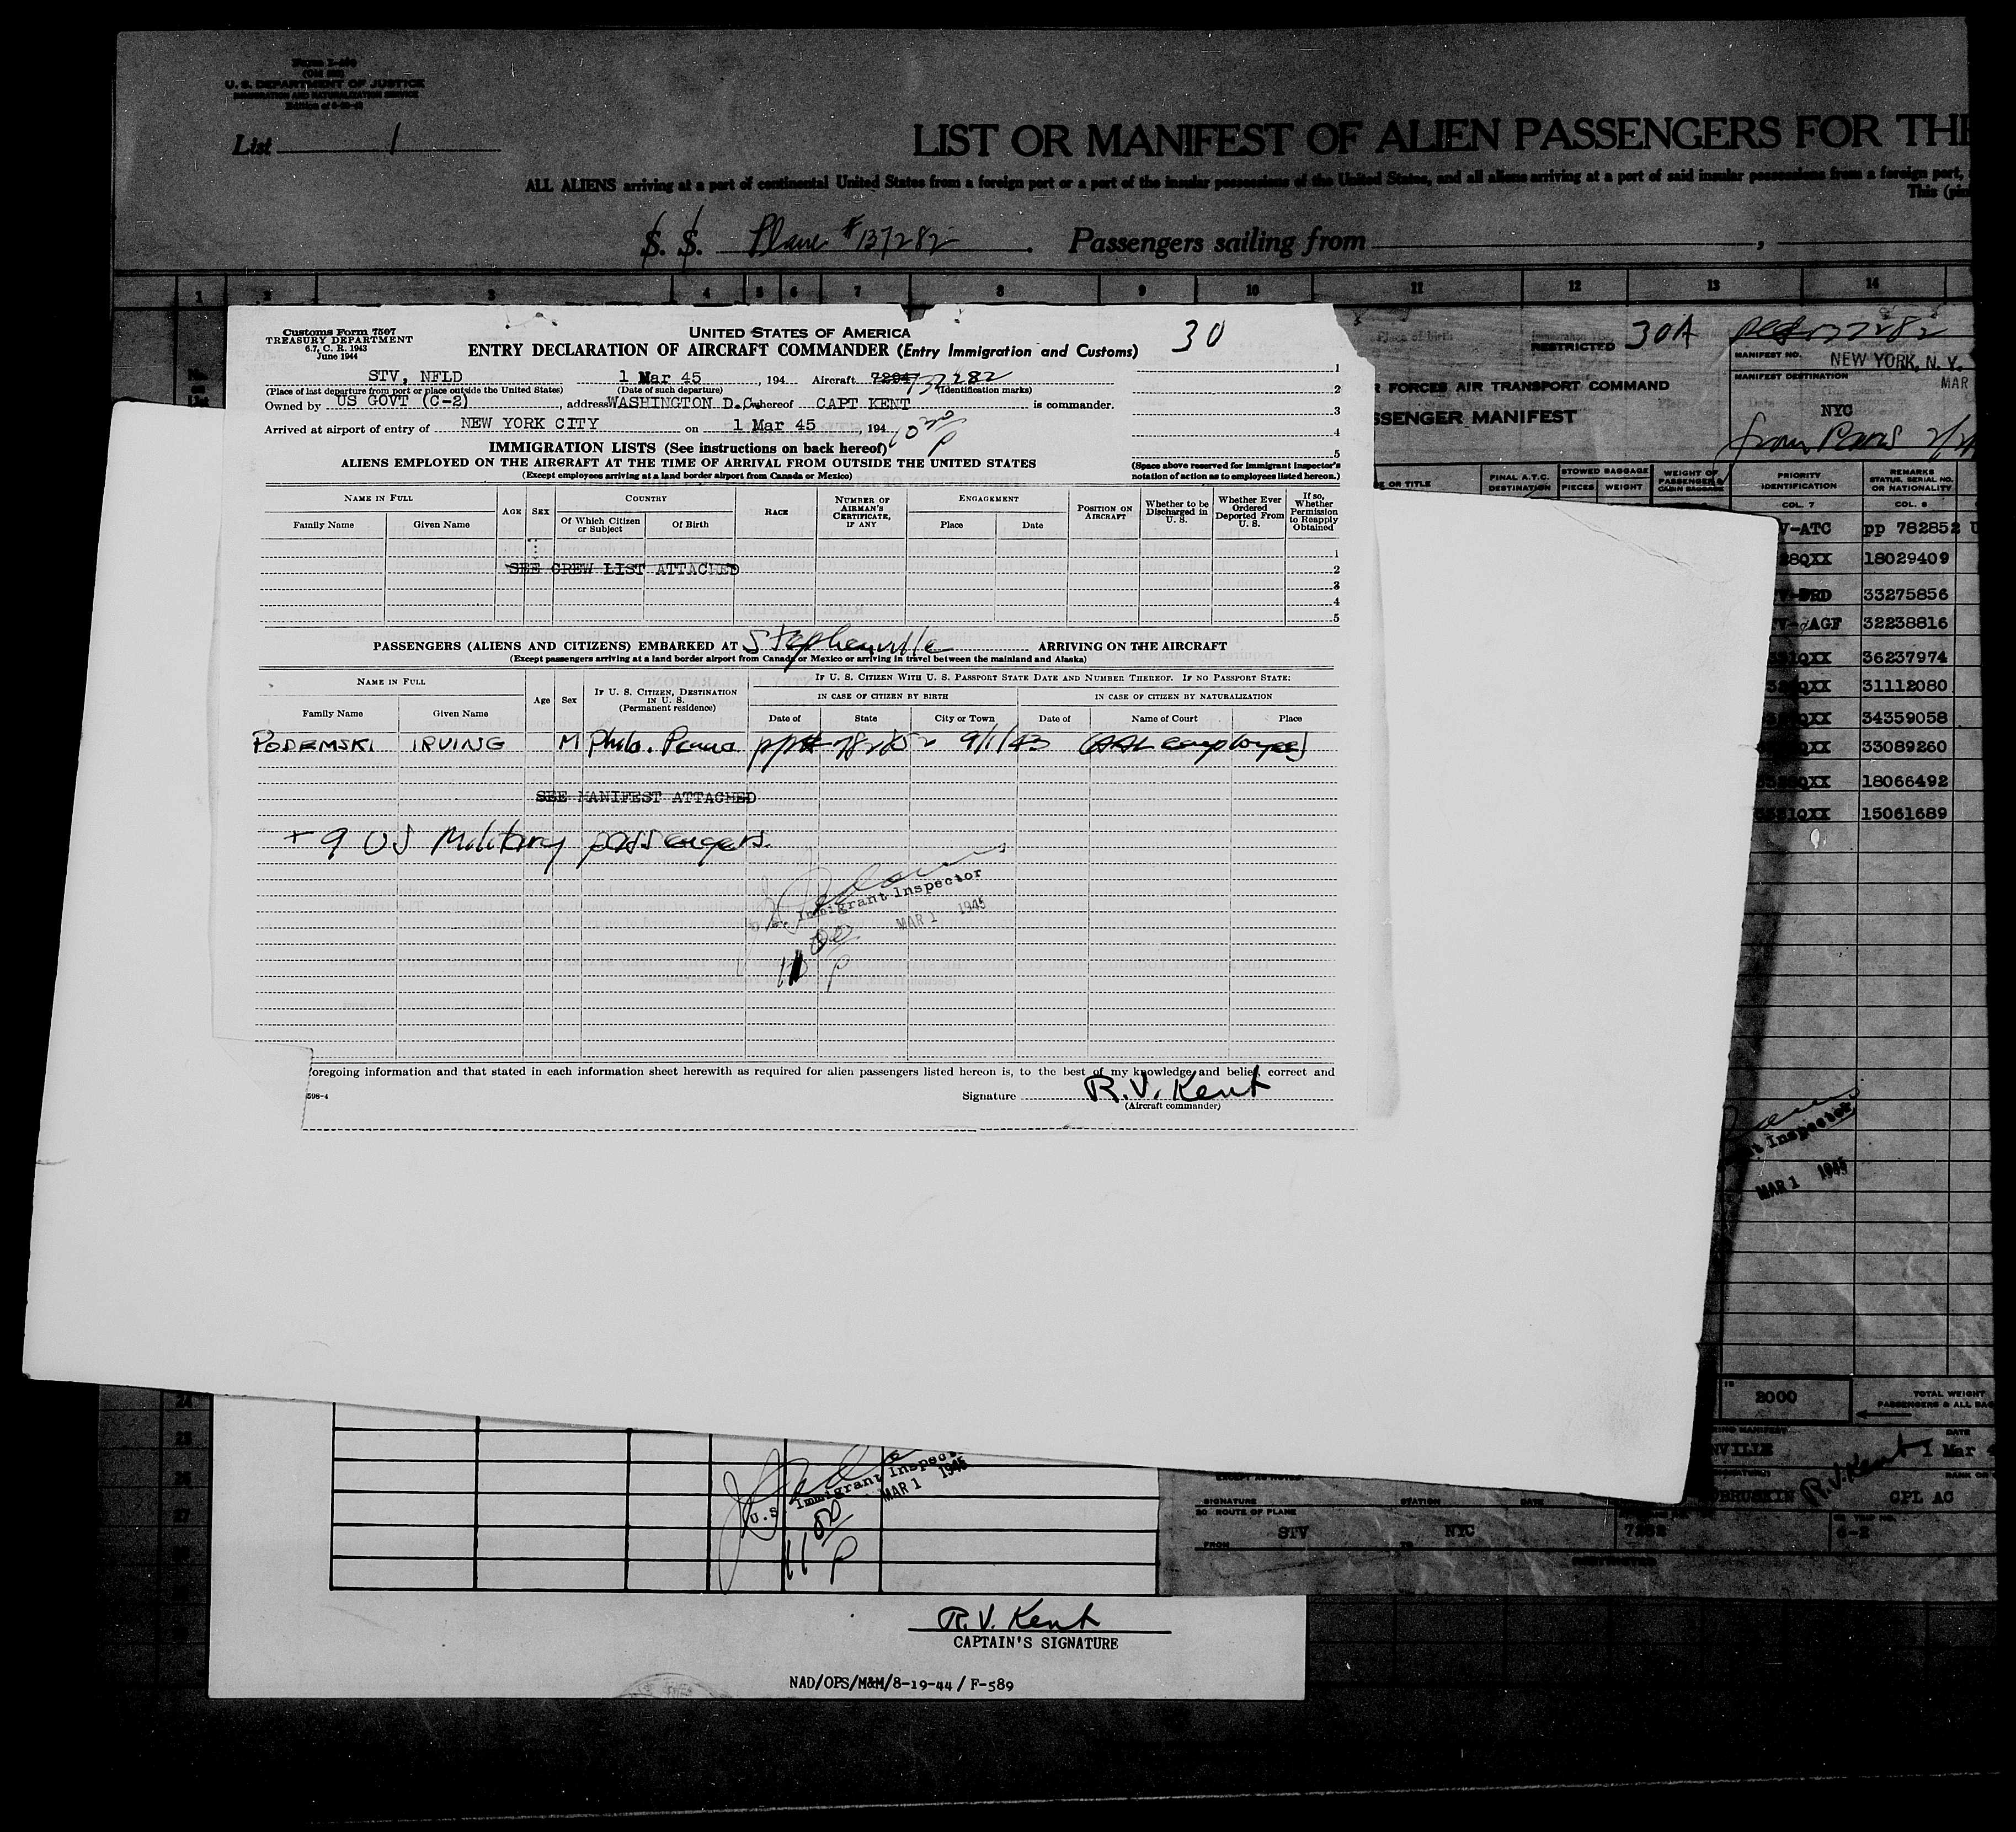 U. S. DEPARTMENT OF JUSTICE
IMMIGRATION AND NATURALIZATION SERVICE
List 1
LIST OR MANIFEST OF ALIEN PASSENGERS FOR THE
ALL ALIENS arriving at a port of continental United States from a foreign port or a port of the insular possessions of the United States, and all aliens arriving at a port of said insular possessions from a foreign port,
S. S. Plane #137282. Passengers sailing from
1 2 3 4 5 6 7 8 9 10 11 12 13 14
Customs Form 7507
TREASURY DEPARTMENT
6.7, C. R. 1943
June 1944
UNITED STATES OF AMERICA
30
ENTRY DECLARATION OF AIRCRAFT COMMANDER (Entry Immigration and Customs)
STV, NFLD 1 Mar 45, 194 Aircraft 137282
(Place of last departure from port or place outside the United States) (Date of such departure) (Identification marks)
Owned by US GOVT (C-2), address WASHINGTON D.C. whereof CAPT KENT is commander.
Arrived at airport of entry of NEW YORK CITY on 1 Mar 45, 194
IMMIGRATION LISTS (See instructions on back hereof)
ALIENS EMPLOYED ON THE AIRCRAFT AT THE TIME OF ARRIVAL FROM OUTSIDE THE UNITED STATES
(Except employees arriving at a land border airport from Canada or Mexico)
1
2
3
4
5
(Space above reserved for immigrant inspector's
notation of action as to employees listed hereon.)
NAME IN FULL
Family Name Given Name
AGE SEX
COUNTRY
Of Which Citizen or Subject Of Birth
RACE
NUMBER OF AIRMAN'S CERTIFICATE, IF ANY
ENGAGEMENT
Place Date
POSITION ON AIRCRAFT
Whether to be Discharged in U. S.
Whether Ever Ordered Deported From U. S.
If so, Whether Permission to Reapply Obtained
1
SEE CREW LIST ATTACHED 2
3
4
5
PASSENGERS (ALIENS AND CITIZENS) EMBARKED AT Stephenville ARRIVING ON THE AIRCRAFT
(Except passengers arriving at a land border airport from Canada or Mexico or arriving in travel between the mainland and Alaska)
NAME IN FULL
Family Name Given Name
Age Sex
IF U. S. CITIZEN, DESTINATION IN U. S.
(Permanent residence)
IF U. S. CITIZEN WITH U. S. PASSPORT STATE DATE AND NUMBER THEREOF. IF NO PASSPORT STATE:
IN CASE OF CITIZEN BY BIRTH IN CASE OF CITIZEN BY NATURALIZATION
Date of State City or Town Date of Name of Court Place
PODEMSKI IRVING M Phila. Penna pp# 782852 9/1/43 (AAL employee)
SEE MANIFEST ATTACHED
+ 9 US Military passengers.
Immigrant Inspector
MAR 1 1945
foregoing information and that stated in each information sheet herewith as required for alien passengers listed hereon is, to the best of my knowledge and belief, correct and
Signature R.V. Kent
(Aircraft commander)
598-4
RESTRICTED 30A
MANIFEST NO.
NEW YORK, N. Y.
MANIFEST DESTINATION
MAR
FORCES AIR TRANSPORT COMMAND
SSENGER MANIFEST
NYC
from Paris
OR TITLE
FINAL A.T.C. DESTINATION
STOWED BAGGAGE
PIECES WEIGHT
WEIGHT OF PASSENGER & CABIN BAGGAGE
PRIORITY IDENTIFICATION
REMARKS
STATUS, SERIAL NO. OR NATIONALITY
COL. 7 COL. 8
V-ATC pp 782852 U
28QXX 18029409
33275856
AGF 32238816
QXX 36237974
QXX 31112080
QXX 34359058
QXX 33089260
QXX 18066492
1QXX 15061689
t Inspector
MAR 1 1945
2000
TOTAL WEIGHT
PASSENGERS & ALL BAG
NVILLE
DATE
1 Mar 4
R.V. Kent
CPL AC
SIGNATURE STATION DATE
ROUTE OF PLANE
STV NYC
FROM TO
U.S. Immigrant Inspec
MAR 1 1945
R.V. Kent
CAPTAIN'S SIGNATURE
NAD/OPS/M&M/8-19-44 / F-589